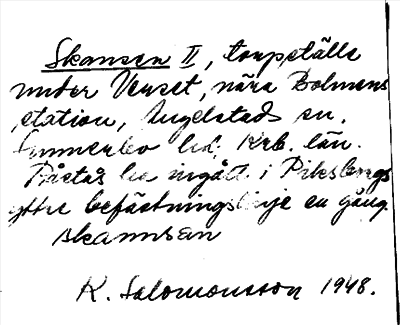 Skansen II, torpställe
under Venset, nära Bolmens
station, Angelstads sn.
Sunnerbo hd, Krb. län.
Påstås ha ingått i Piksborgs
yttre befästningslinje en gång.
skannsan
K. Salomonsson 1948.